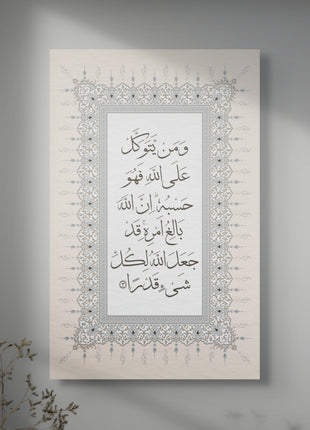 وَمَنْ يَّتَوَكَّلْ
عَلَى اللّٰهِ فَهُوَ
حَسْبُهٗ ؕ اِنَّ اللّٰهَ
بَالِغُ اَمْرِهٖ ؕ قَدْ
جَعَلَ اللّٰهُ لِكُلِّ
شَیْءٍ قَدْرًا ۝۳